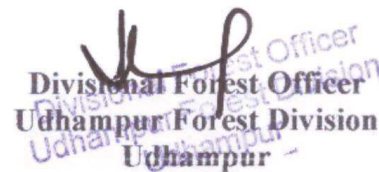 Divisional Forest Officer
Udhampur Forest Division
Udhampur
Divisional Forest Officer
Udhampur Forest Division
Udhampur